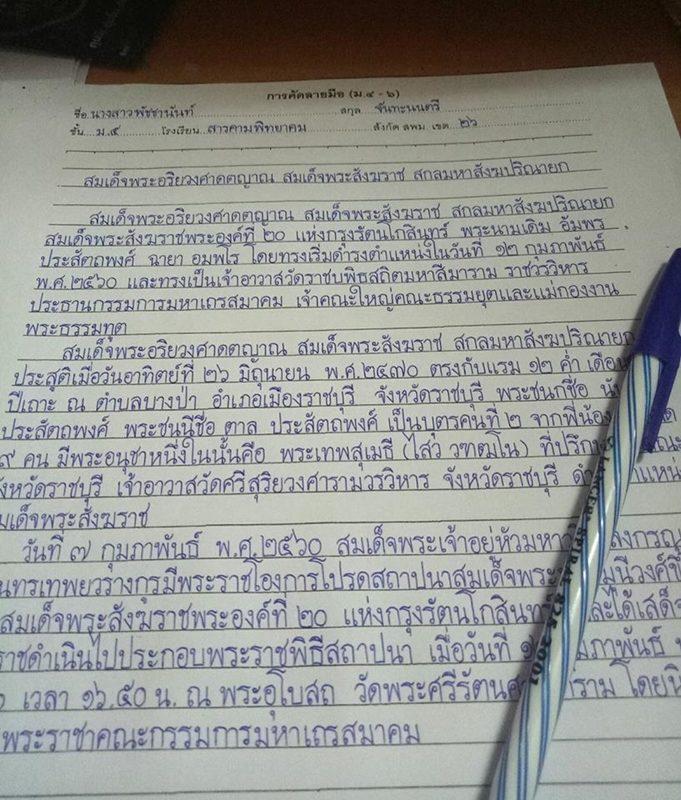 การคัดลายมือ (ม.๔ - ๖)
ชื่อ นางสาวพัชชานันท์ สกุล จันทะนนตรี
ชั้น ม.๕ โรงเรียน สารคามพิทยาคม สังกัด สพม. เขต ๒๖
สมเด็จพระอริยวงศาคตญาณ สมเด็จพระสังฆราช สกลมหาสังฆปริณายก
สมเด็จพระอริยวงศาคตญาณ สมเด็จพระสังฆราช สกลมหาสังฆปริณายก
สมเด็จพระสังฆราชพระองค์ที่ ๒๐ แห่งกรุงรัตนโกสินทร์ พระนามเดิม อัมพร
ประสัตถพงศ์ ฉายา อมพโร โดยทรงเริ่มดำรงตำแหน่งในวันที่ ๑๒ กุมภาพันธ์
พ.ศ.๒๕๖๐ และทรงเป็นเจ้าอาวาสวัดราชบพิธสถิตมหาสีมาราม ราชวรวิหาร
ประธานกรรมการมหาเถรสมาคม เจ้าคณะใหญ่คณะธรรมยุตและแม่กองงาน
พระธรรมทูต
สมเด็จพระอริยวงศาคตญาณ สมเด็จพระสังฆราช สกลมหาสังฆปริณายก
ประสูติเมื่อวันอาทิตย์ที่ ๒๖ มิถุนายน พ.ศ.๒๔๗๐ ตรงกับแรม ๑๒ ค่ำ เดือน
ปีเถาะ ณ ตำบลบางป่า อำเภอเมืองราชบุรี จังหวัดราชบุรี พระชนกชื่อ
ประสัตถพงศ์ พระชนนีชื่อ ตาล ประสัตถพงศ์ เป็นบุตรคนที่ ๒ จากพี่น้อง
๙ คน มีพระอนุชาหนึ่งในนั้นคือ พระเทพสุเมธี (ไสว วฑฒโน) ที่ปรึกษา
จังหวัดราชบุรี เจ้าอาวาสวัดศรีสุริยวงศารามวรวิหาร จังหวัดราชบุรี
สมเด็จพระสังฆราช
วันที่ ๗ กุมภาพันธ์ พ.ศ.๒๕๖๐ สมเด็จพระเจ้าอยู่หัวมหา ลงกรณ
นทรเทพยวรางกูรมีพระราชโองการโปรดสถาปนาสมเด็จพระ มุนีวงศ์ขึ้
สมเด็จพระสังฆราชพระองค์ที่ ๒๐ แห่งกรุงรัตนโกสินทร์ และได้เสด็จ
ราชดำเนินไปประกอบพระราชพิธีสถาปนา เมื่อวันที่ ภาพันธ์
เวลา ๑๖.๕๐ น. ณ พระอุโบสถ วัดพระศรีรัตนศา ดาราม โดย
พระราชาคณะกรรมการมหาเถรสมาคม